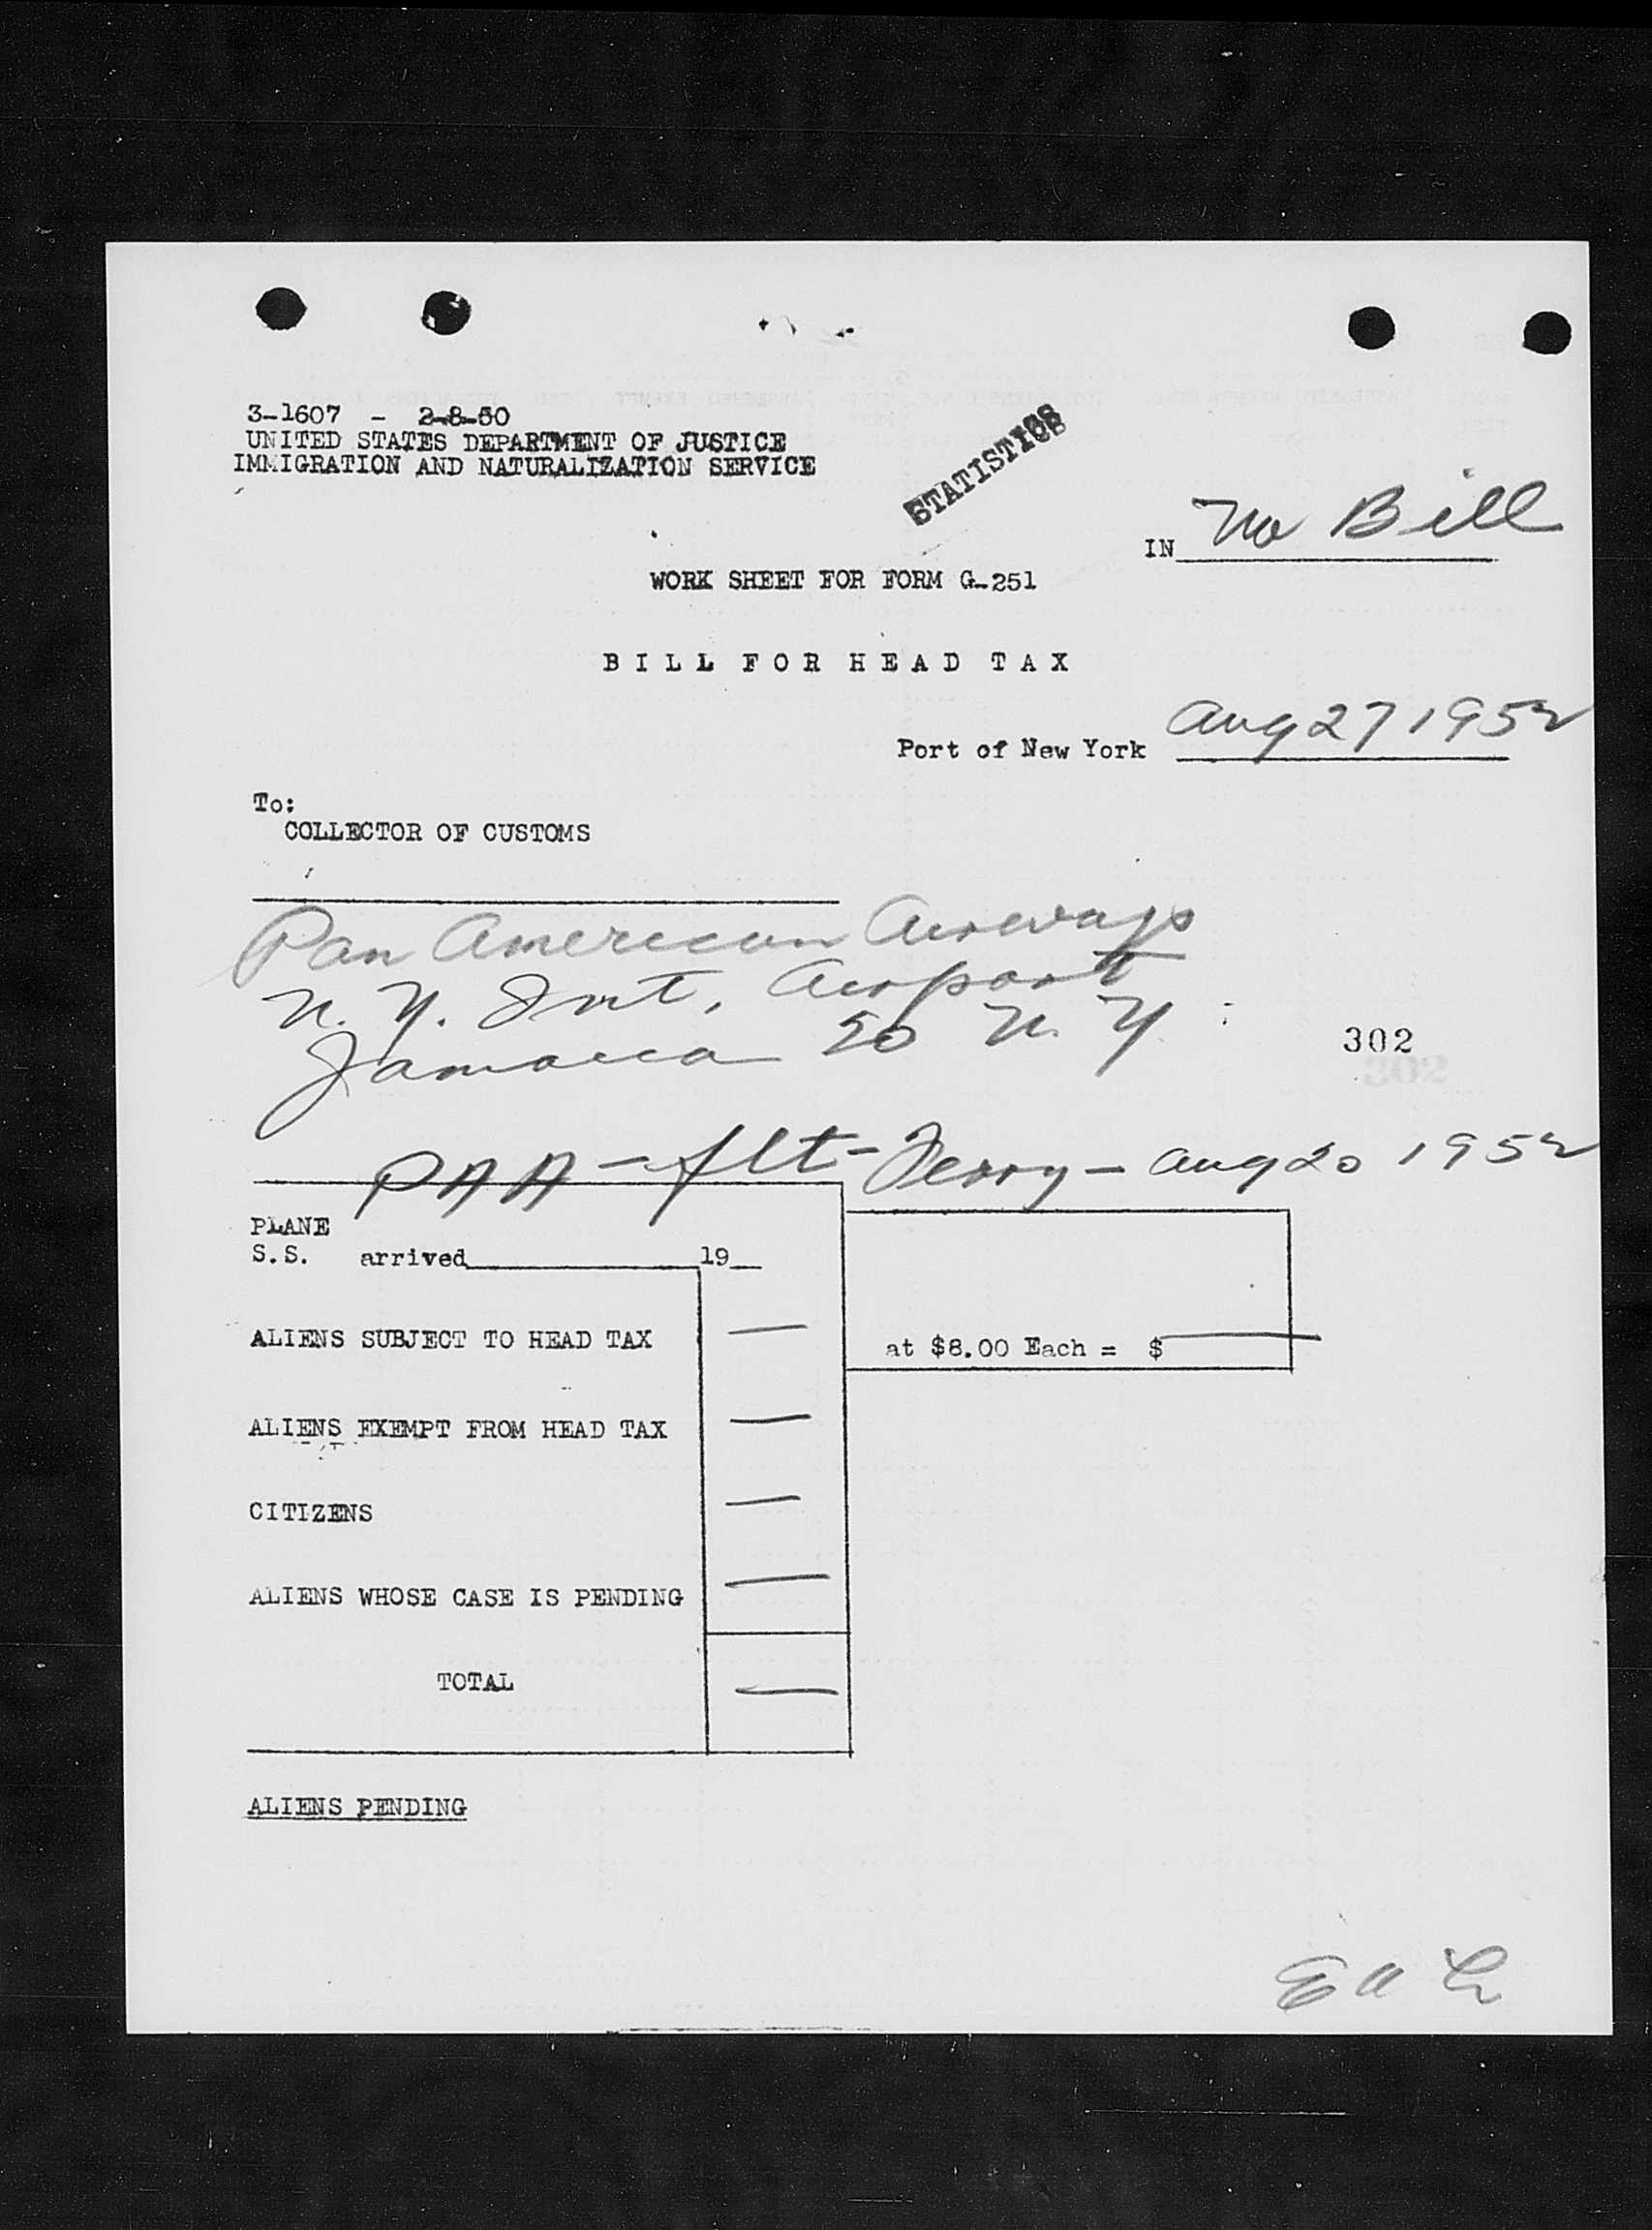 3-1607 - 2-8-50
UNITED STATES DEPARTMENT OF JUSTICE
IMMIGRATION AND NATURALIZATION SERVICE
STATISTICS
IN No Bill
WORK SHEET FOR FORM G-251
BILL FOR HEAD TAX
Port of New York Aug 27 1952
To:
COLLECTOR OF CUSTOMS
Pan American Airways
N. Y. Int. Airport
Jamaica 30 N. Y.
302
PAA - flt - Ferry - Aug 20 1952
PLANE
S.S. arrived 19
ALIENS SUBJECT TO HEAD TAX —
at $8.00 Each = $ —
ALIENS EXEMPT FROM HEAD TAX —
CITIZENS —
ALIENS WHOSE CASE IS PENDING —
TOTAL —
ALIENS PENDING